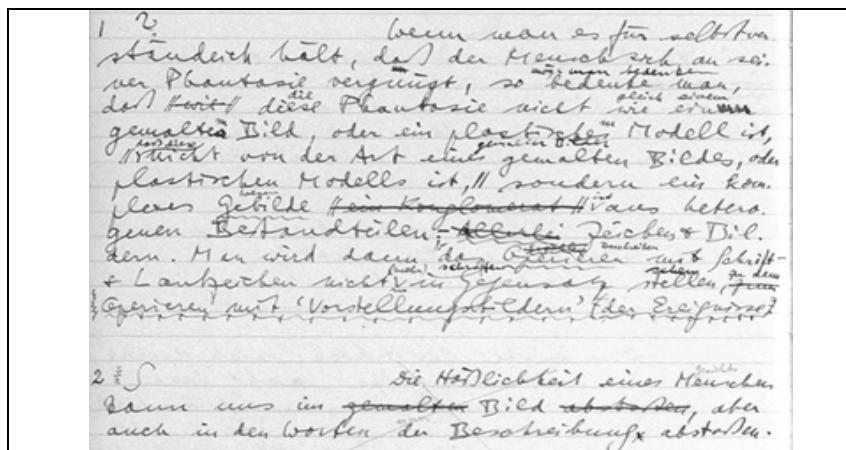 1 ? Wenn man es für selbstver
ständlich hält, daß der Mensch sich an sei-
ner Phantasie vergnügt, so bedenke man,
mag man bedenken
daß //wit// diese Phantasie nicht wie ein
die gleich einem
gemaltes Bild, oder ein plastisches Modell ist,
daß diese
//nicht von der Art eines gemalten Bildes, oder
plastischen Modells ist,// sondern ein kom-
plexes Gebilde //ein Konglomerat// aus hetero-
ist
genen Bestandteilen: Allerlei Zeichen & Bil-
dern. Man wird dann das Operieren mit Schrift-
& Lautzeichen nicht in Gegensatz stellen, zum
(mehr) zu dem
Operieren mit ‘Vorstellungsbildern’ der Ereignisse?
2 ∫ Die Häßlichkeit eines Menschen
kann uns im gemalten Bild abstoßen, aber
auch in den Worten der Beschreibung, abstoßen.